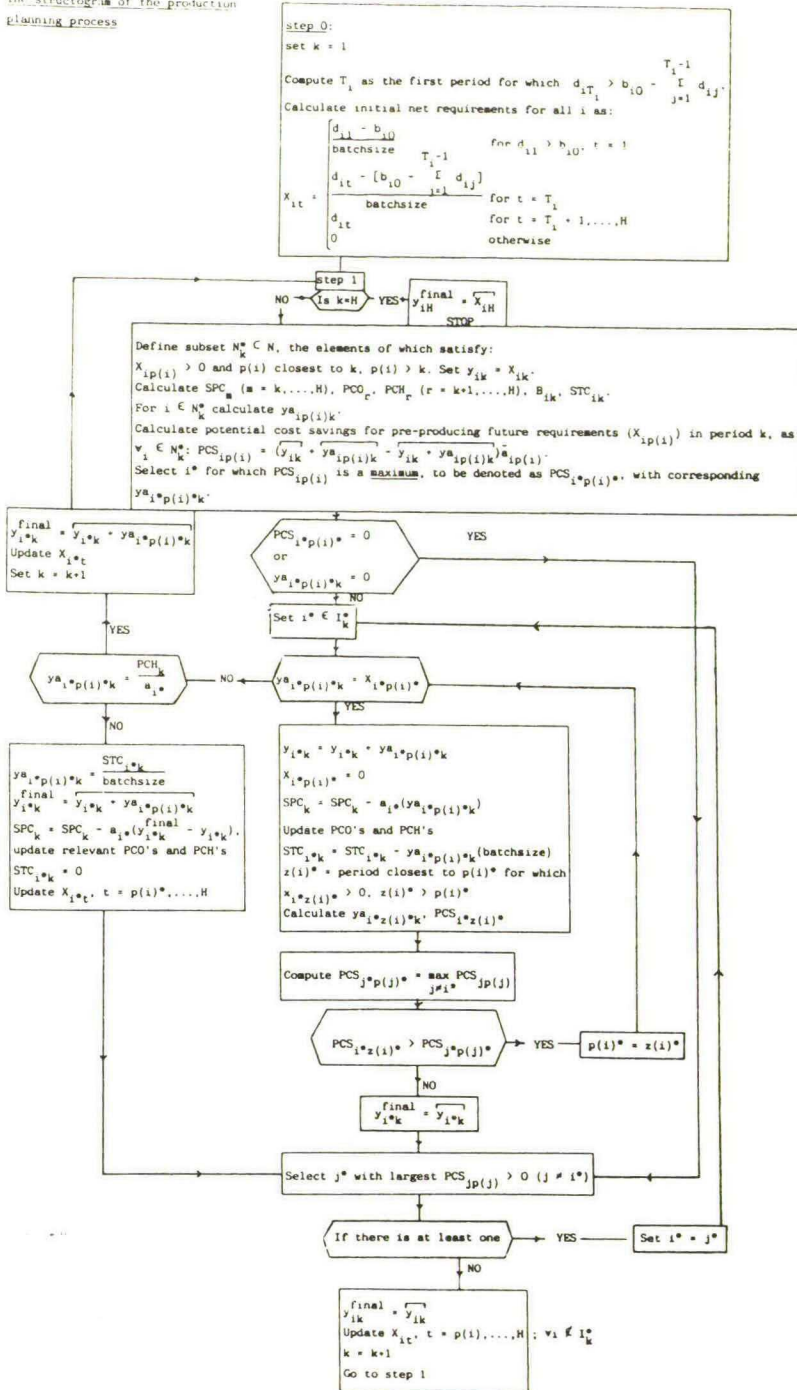 The structogram of the production
planning process
step 0:
set k = 1
Compute T_i as the first period for which d_{iT_i} > b_{i0} - Σ_{j=1}^{T_i-1} d_{ij}.
Calculate initial net requirements for all i as:
X_{it} =
(d_{i1} - b_{i0}) / batchsize for d_{i1} > b_{i0}, t = 1
(d_{it} - [b_{i0} - Σ_{j=1}^{T_i-1} d_{ij}]) / batchsize for t = T_i
d_{it} for t = T_i + 1,...,H
0 otherwise
step 1
NO
Is k=H
YES
y_{iH}^{final} = X_{iH}
STOP
Define subset N_k^* ⊂ N, the elements of which satisfy:
X_{ip(i)} > 0 and p(i) closest to k, p(i) > k. Set y_{ik} = X_{ik}.
Calculate SPC_m (m = k,...,H), PCO_r, PCH_r (r = k+1,...,H), B_{ik}, STC_{ik}.
For i ∈ N_k^* calculate ya_{ip(i)k}.
Calculate potential cost savings for pre-producing future requirements (X_{ip(i)}) in period k, as
∀_i ∈ N_k^*: PCS_{ip(i)} = (y_{ik} + ya_{ip(i)k} - y_{ik} + ya_{ip(i)k})a_{ip(i)}.
Select i* for which PCS_{ip(i)} is a maximum, to be denoted as PCS_{i*p(i)*}, with corresponding
ya_{i*p(i)*k}.
y_{i*k}^{final} = y_{i*k} + ya_{i*p(i)*k}
Update X_{i*t}
Set k = k+1
PCS_{i*p(i)*} = 0
or
ya_{i*p(i)*k} = 0
YES
NO
Set i* ∈ I_k^*
YES
ya_{i*p(i)*k} = PCH_k / a_{i*}
NO
ya_{i*p(i)*k} = X_{i*p(i)*}
NO
YES
ya_{i*p(i)*k} = STC_{i*k} / batchsize
y_{i*k}^{final} = y_{i*k} + ya_{i*p(i)*k}
SPC_k = SPC_k - a_{i*}(y_{i*k}^{final} - y_{i*k}),
update relevant PCO's and PCH's
STC_{i*k} = 0
Update X_{i*t}, t = p(i)*,...,H
y_{i*k} = y_{i*k} + ya_{i*p(i)*k}
X_{i*p(i)*} = 0
SPC_k = SPC_k - a_{i*}(ya_{i*p(i)*k})
Update PCO's and PCH's
STC_{i*k} = STC_{i*k} - ya_{i*p(i)*k}(batchsize)
z(i)* = period closest to p(i)* for which
x_{i*z(i)*} > 0, z(i)* > p(i)*
Calculate ya_{i*z(i)*k}, PCS_{i*z(i)*}
Compute PCS_{j*p(j)*} = max_{j≠i*} PCS_{jp(j)}
PCS_{i*z(i)*} > PCS_{j*p(j)*}
YES
p(i)* = z(i)*
NO
y_{i*k}^{final} = y_{i*k}
Select j* with largest PCS_{jp(j)} > 0 (j ≠ i*)
If there is at least one
YES
Set i* = j*
NO
y_{ik}^{final} = y_{ik}
Update X_{it}, t = p(i),...,H ; ∀i ∉ I_k^*
k = k+1
Go to step 1